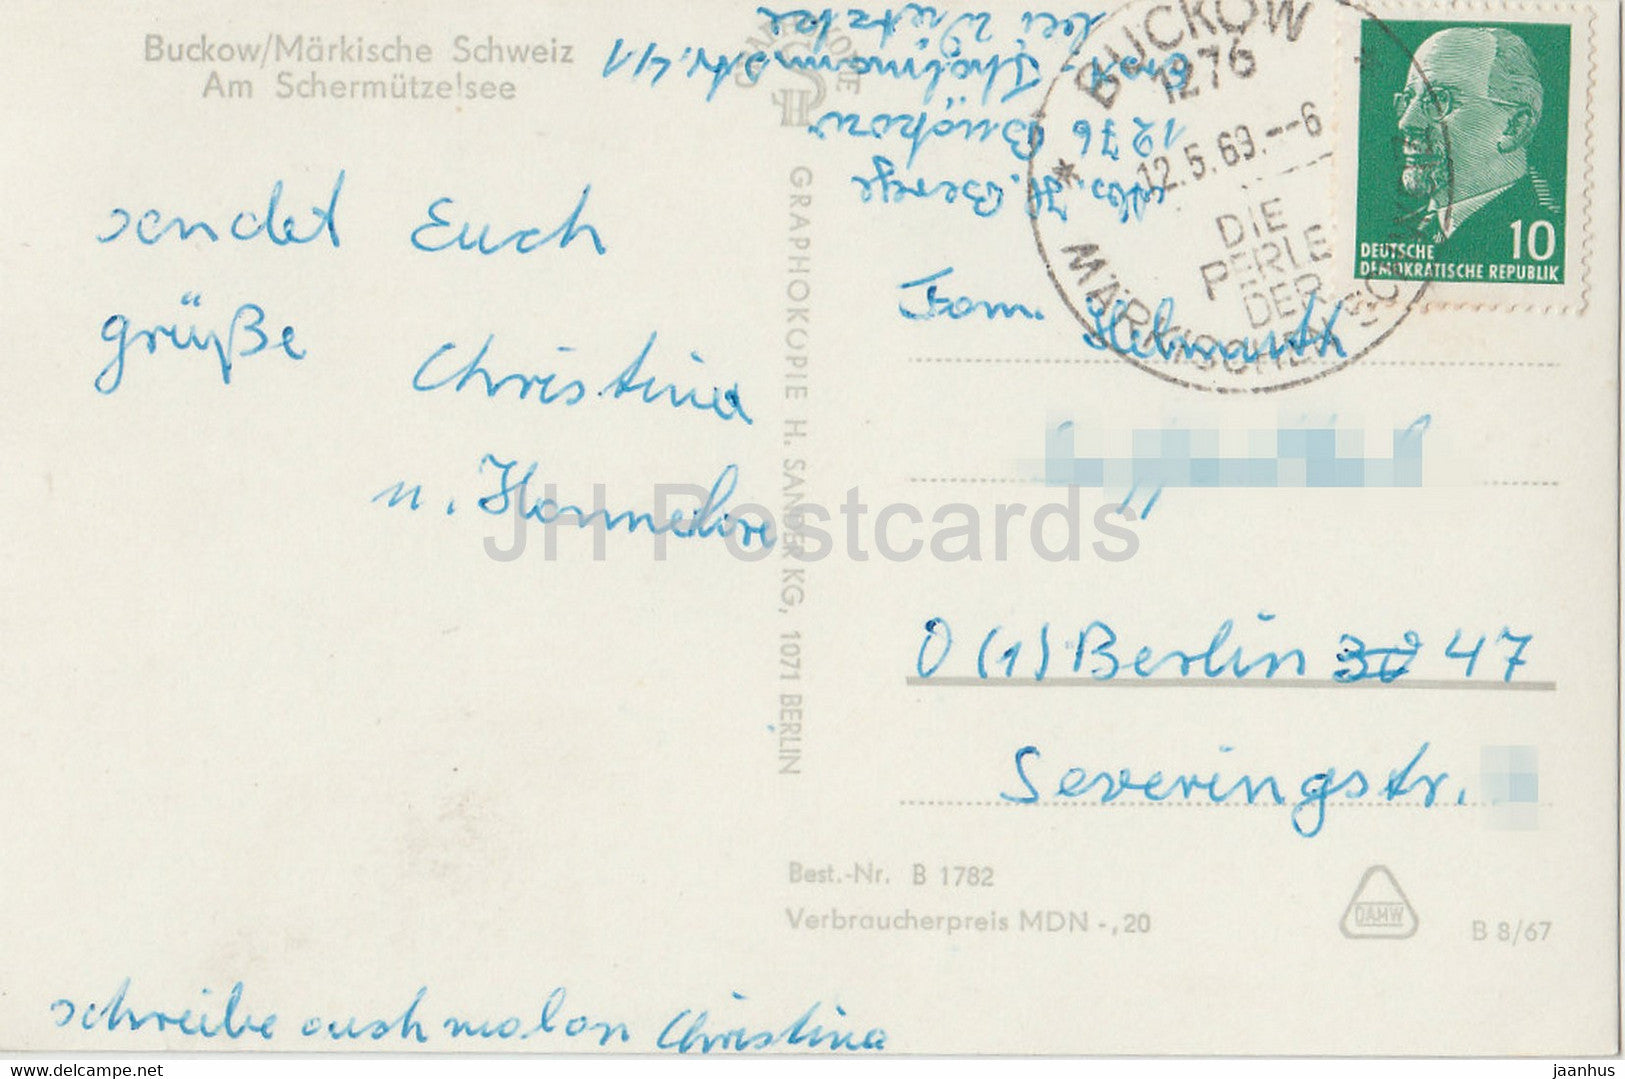 Buckow/Märkische Schweiz
Am Schermützelsee
sendet Euch
grüße
Christina
u. Hannelore
schreibe auch mal an Christina
GRAPHOKOPIE H. SANDER KG, 1071 BERLIN
Abs. H. Berge
1276 Buckow
Ernst-Thälmannstr. 41
bei Wutzke
BUCKOW
1276
12.5.69.--6
DIE
PERLE
DER
MÄRKISCHEN SCHWEIZ
10
DEUTSCHE
DEMOKRATISCHE REPUBLIK
Fam. Helmuth
O (1) Berlin 47
Severingstr.
Best.-Nr. B 1782
Verbraucherpreis MDN -,20
DAMW
B 8/67
JH Postcards
www.delcampe.net
jaanhus